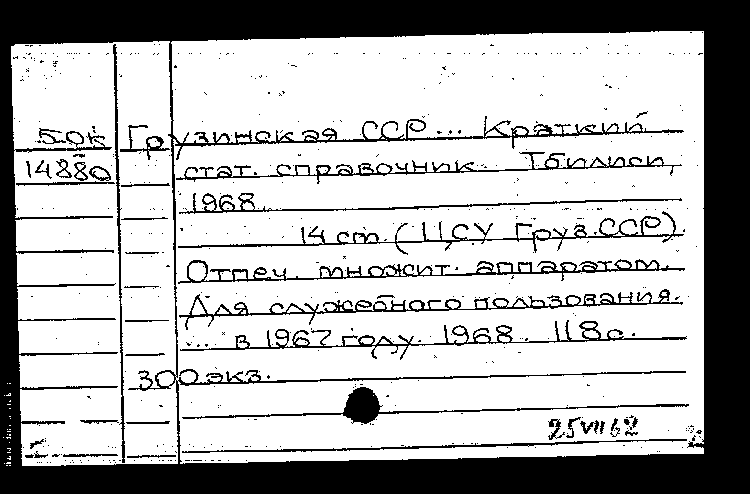 50к Грузинская ССР... Краткий
14880 стат. справочник. Тбилиси,
1968.
14 cm. (ЦСУ Груз.ССР).
Отпеч. множит. аппаратом.
Для служебного пользования.
... в 1967 году. 1968. 118с.
300экз.
25 VII 62